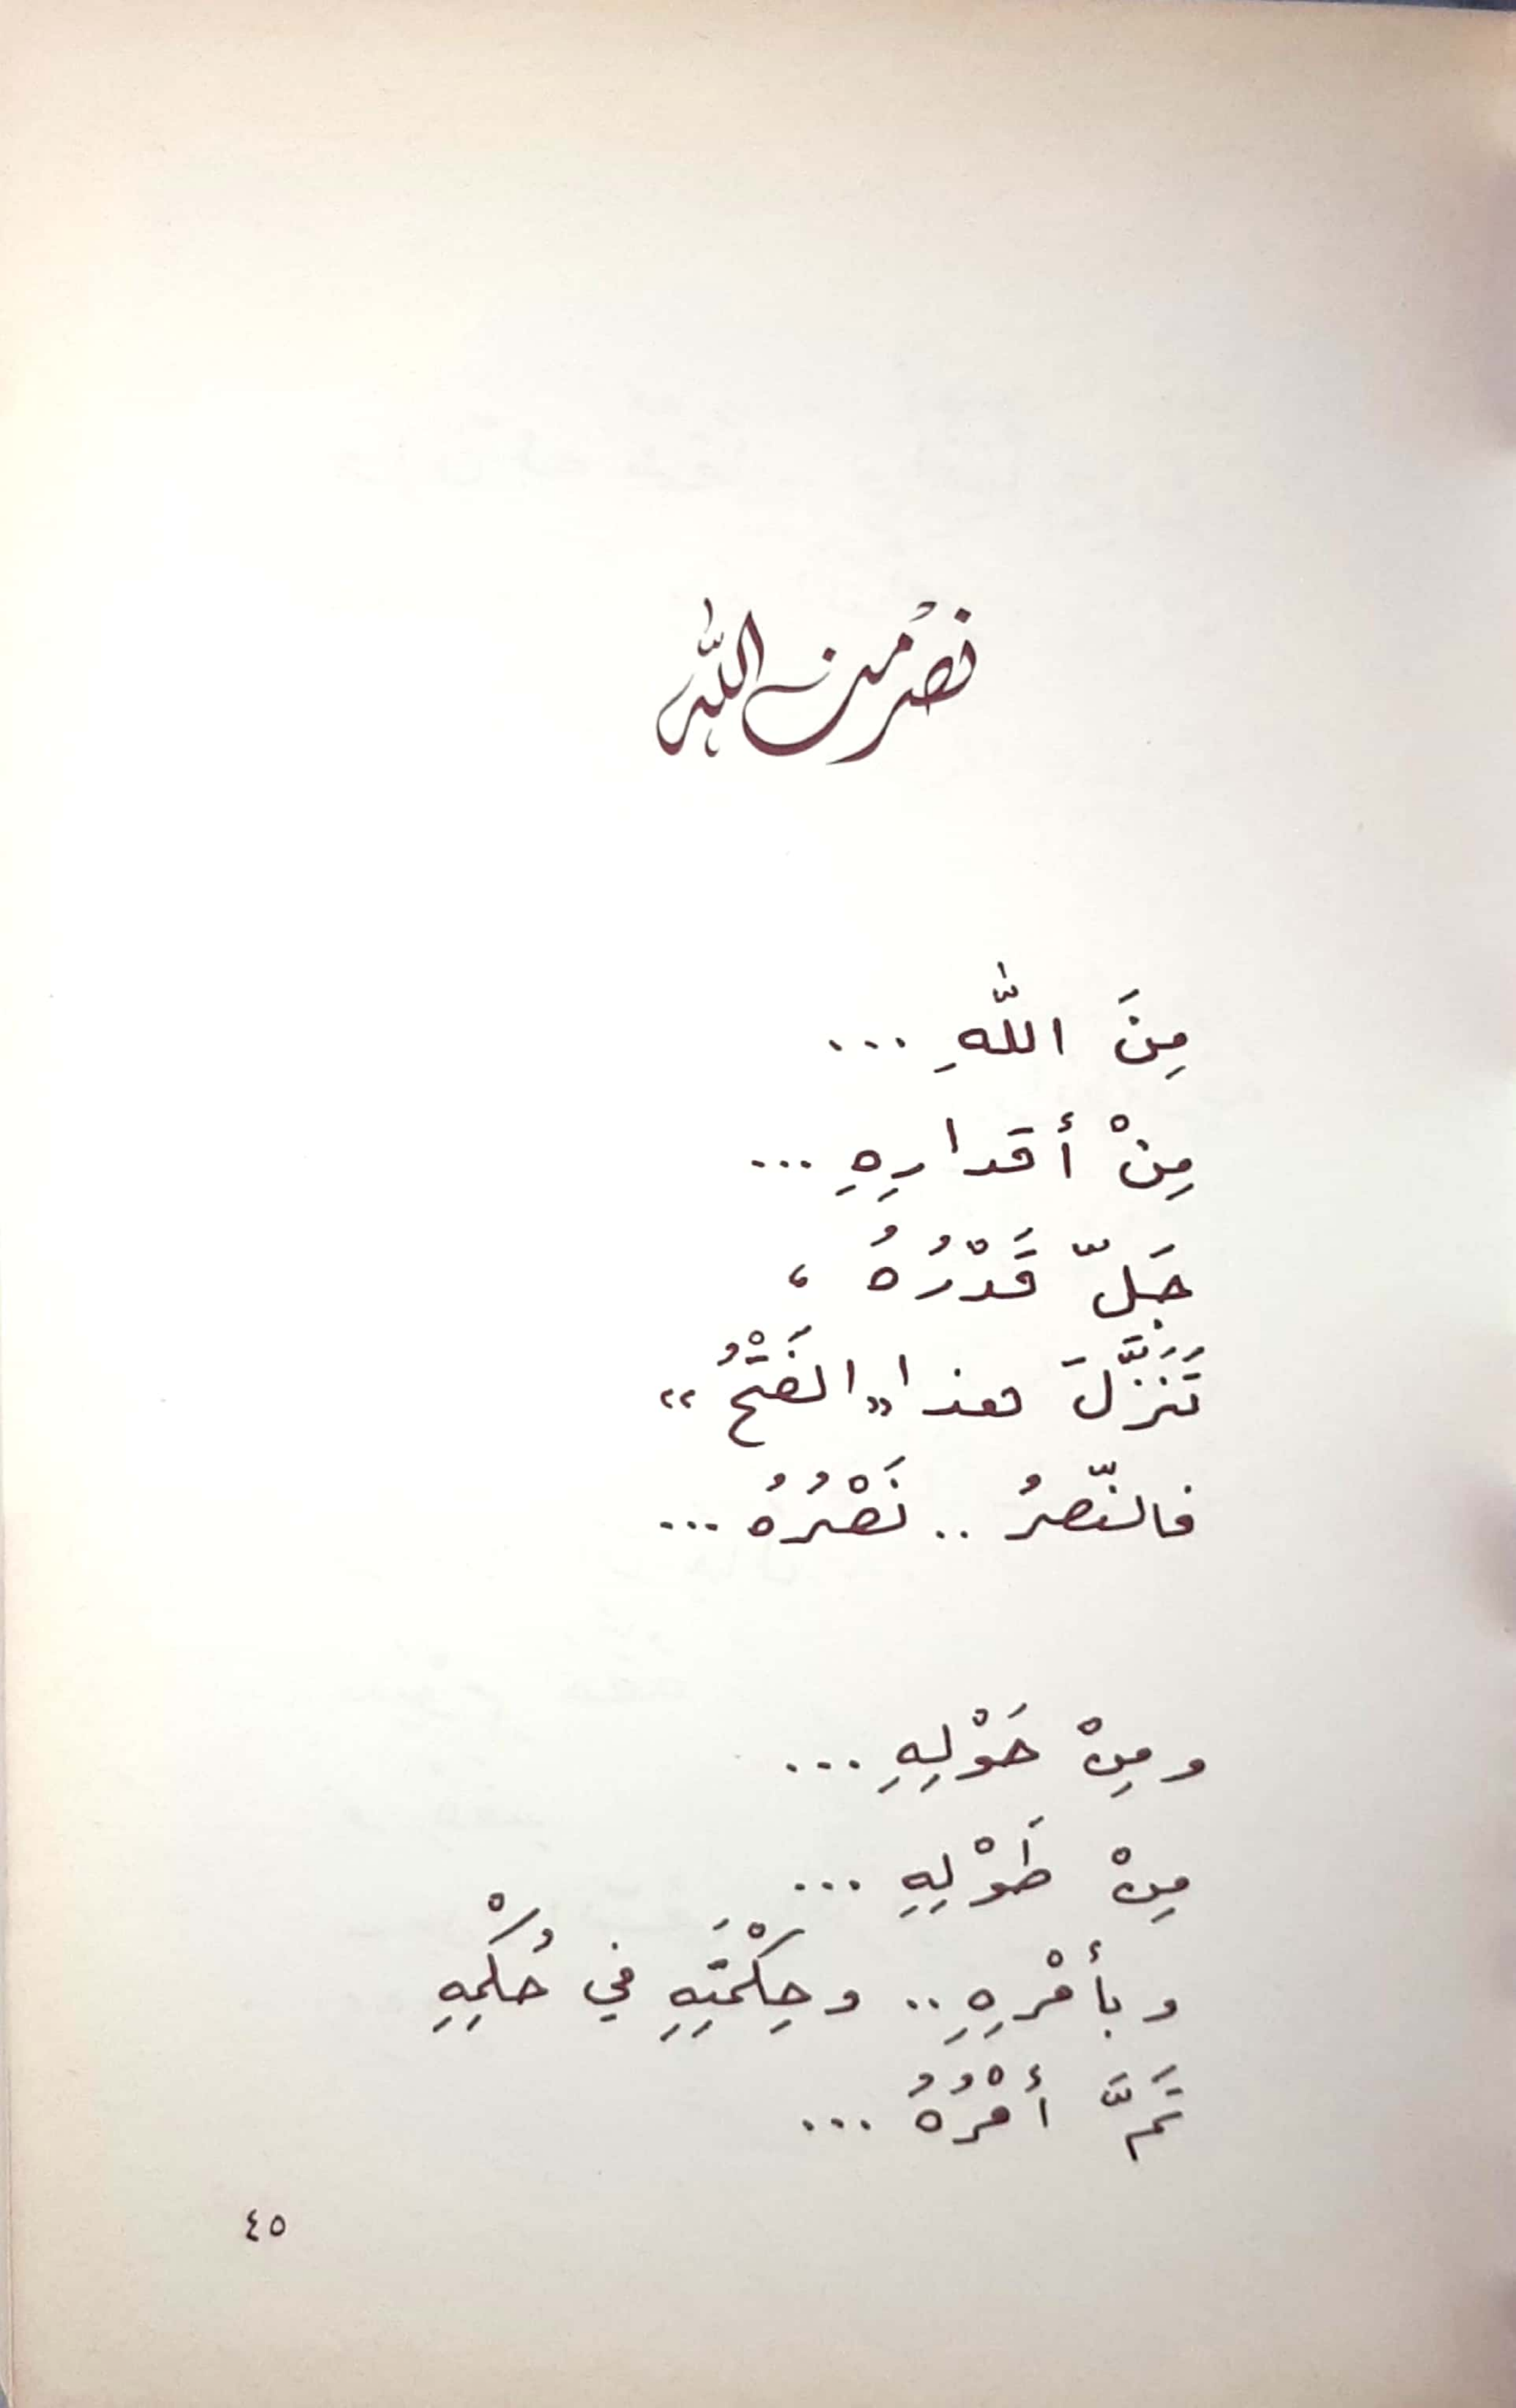 نصرٌ من الله
مِنَ اللّٰهِ ...
مِنْ أقدارِهِ ...
جَلّ قَدْرُهُ ،
تَنَزَّلَ هذا «الفَتْحُ»
فالنّصرُ .. نَصْرُهُ ...
ومِنْ حَوْلِهِ ...
مِنْ طَوْلِهِ ...
وبأمْرِهِ .. وحِكْمَتِهِ في حُكْمِهِ
تَمَّ أمْرُهُ ...
٤٥